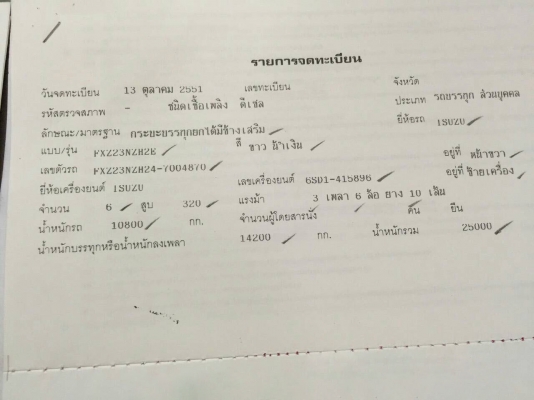 รายการจดทะเบียน
วันจดทะเบียน 13 ตุลาคม 2551 เลขทะเบียน จังหวัด
รหัสตรวจสภาพ - ชนิดเชื้อเพลิง ดีเซล ประเภท รถบรรทุก ส่วนบุคคล
ลักษณะ/มาตรฐาน กระบะบรรทุกยกได้มีข้างเสริม ยี่ห้อรถ ISUZU
แบบ/รุ่น FXZ23NZH2E สี ขาว น้ำเงิน
เลขตัวรถ FXZ23NZH24-7004870 อยู่ที่ หน้าขวา
ยี่ห้อเครื่องยนต์ ISUZU เลขเครื่องยนต์ 6SD1-415896 อยู่ที่ ซ้ายเครื่อง
จำนวน 6 สูบ 320 แรงม้า 3 เพลา 6 ล้อ ยาง 10 เส้น
น้ำหนักรถ 10800 กก. จำนวนผู้โดยสารนั่ง คน ยืน
น้ำหนักบรรทุกหรือน้ำหนักลงเพลา 14200 กก. น้ำหนักรวม 25000